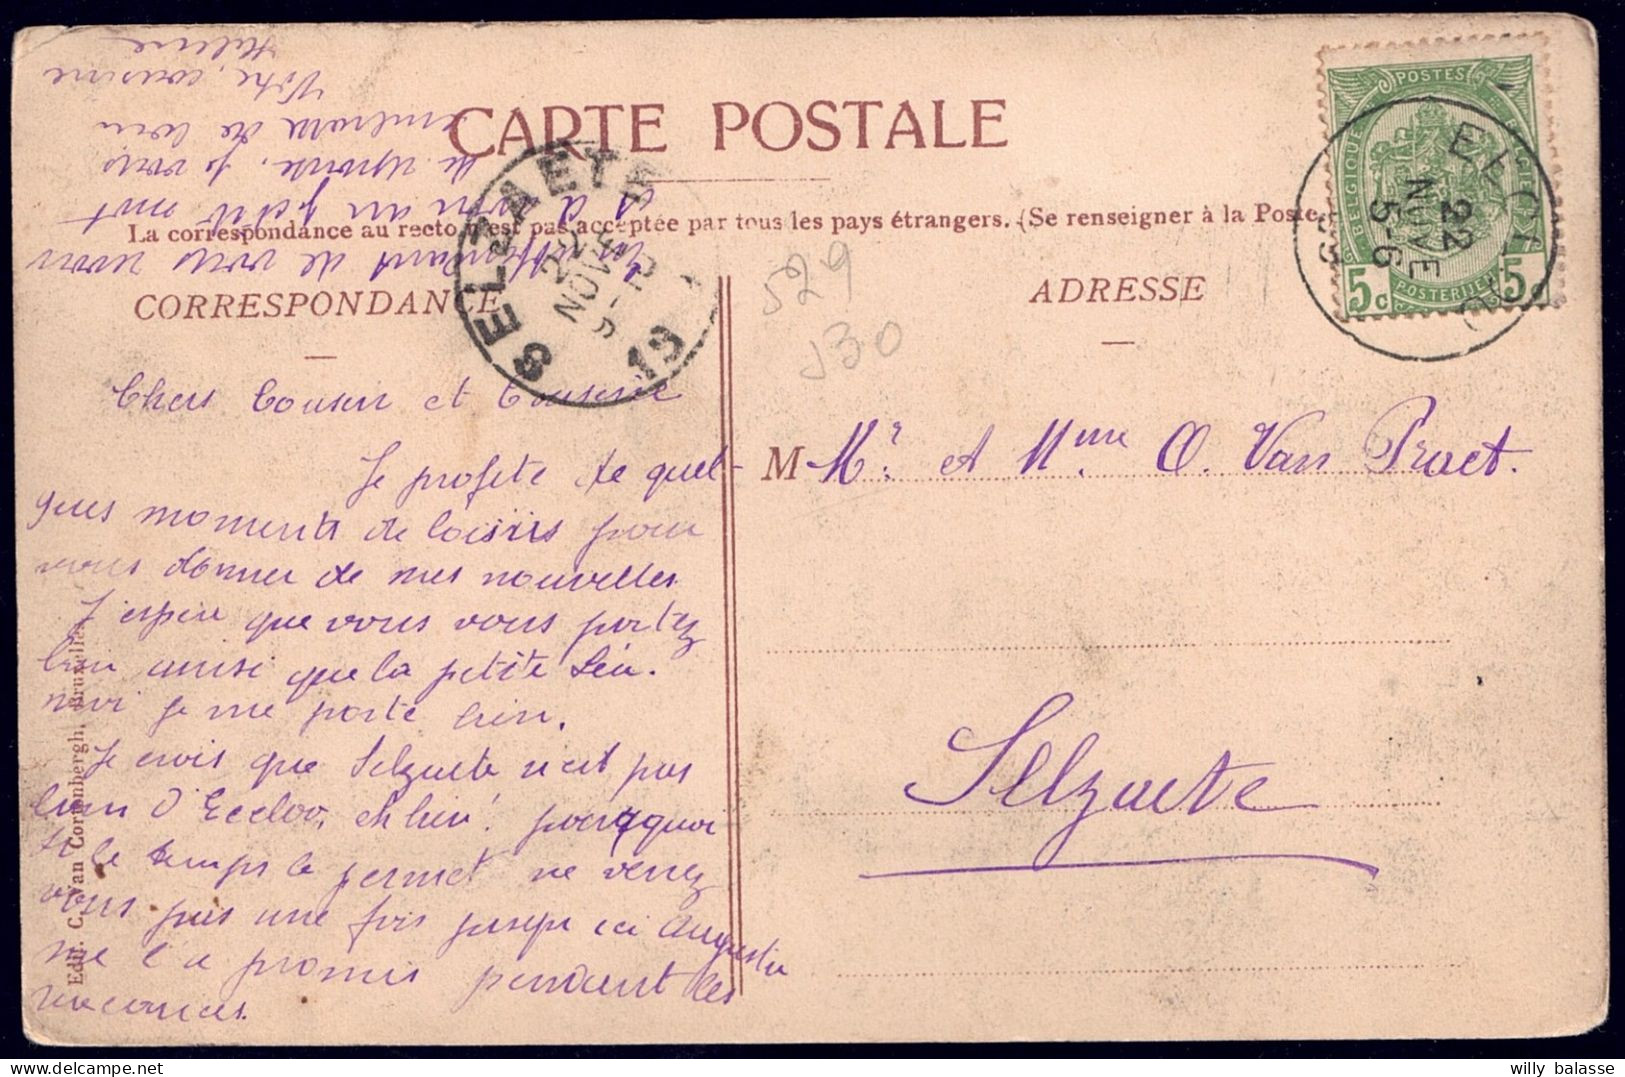 CARTE POSTALE
La correspondance au recto n'est pas acceptée par tous les pays étrangers. (Se renseigner à la Poste.
CORRESPONDANCE
ADRESSE
SELZAETE
22 NOVE
19
ECLOO
22
NOVE
5-6
POSTES
BELGIQUE
POSTERIJEN
5c
5c
529
530
Chers Cousin et Cousine
Je profite de quel-
ques moments de loisirs pour
vous donner de mes nouvelles
J'espère que vous vous portez
bien ainsi que la petite Léa.
moi je me porte bien.
Je crois que Selzaete n'est pas
loin d'Eecloo, eh bien! pourquoi
si le temps le permet ne venez
vous pas une fois jusqu'ici Augustin
me l'a promis pendant les
vacances.
En attendant de vous revoir
et d'avoir un petit mot
de réponse, je vous
embrasse de loin
Votre cousine
M Mr. et Mme. O. Van Praet.
Selzaete
Edit. C. Van Cortenbergh, Bruxelles.
willy balasse